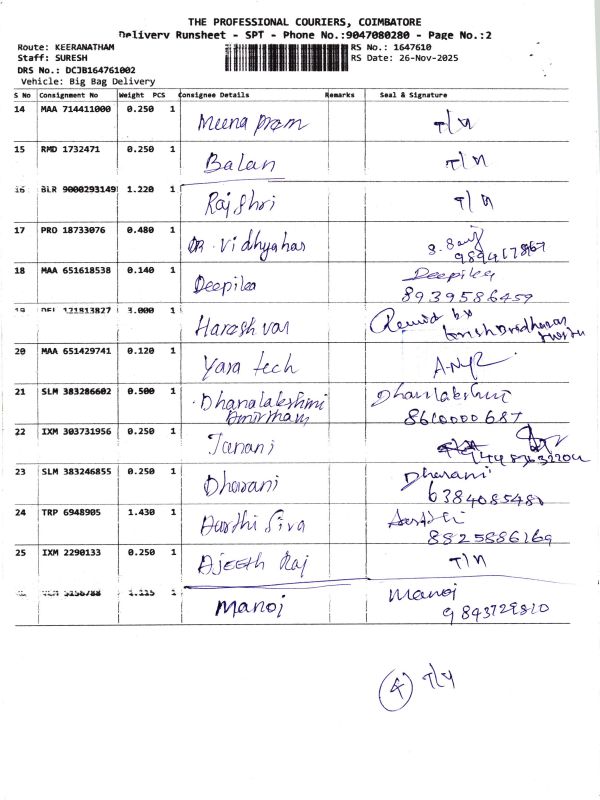 THE PROFESSIONAL COURIERS, COIMBATORE
Delivery Runsheet - SPT - Phone No.:9047080280 - Page No.:2
Route: KEERANATHAM
RS No.: 1647610
Staff: SURESH
RS Date: 26-Nov-2025
DRS No.: DCJB164761002
Vehicle: Big Bag Delivery
S No Consignment No Weight PCS Consignee Details Remarks Seal & Signature
14 MAA 714411000 0.250 1 Meena prem T/N
15 RMD 1732471 0.250 1 Balan T/N
16 BLR 9000293149 1.220 1 Rajshri T/N
17 PRO 18733076 0.480 1 DR. Vidhyahar
18 MAA 651618538 0.140 1 Deepika Deepika
8939586459
19 DEL 121813827 3.000 1 Hareshvar
20 MAA 651429741 0.120 1 Yara tech
21 SLM 383286602 0.500 1 Dhanalakshmi Dhanlakshmi
8610000687
22 IXM 303731956 0.250 1 Janani
23 SLM 383246855 0.250 1 Dharani Dharani
6384085480
24 TRP 6948905 1.430 1 Aarthi Siva Aarthi
8825886169
25 IXM 2290133 0.250 1 Ajeeth Raj T/N
1.115 1 Manoj Manoj
9843729810
4 T/N